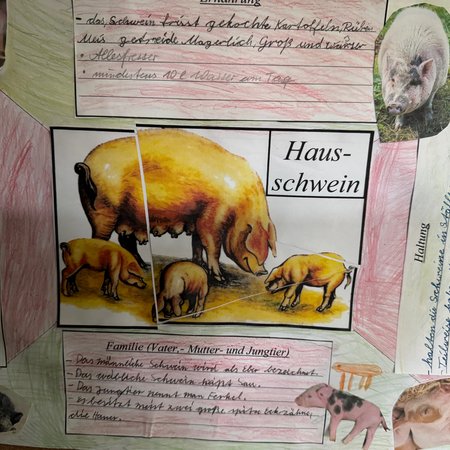 Ernährung
- das Schwein frisst gekochte Kartoffeln, Rüben
Mais getreide Magerlich, Groß und würmer
• Allesfresser
• mindestens 10 l Wasser am Tag
Haus-
schwein
Haltung
halten die Schweine in Ställe
Familie (Vater,- Mutter- und Jungtier)
- Das männliche Schwein wird als Eber bezeichnet.
- Das weibliche Schwein heißt Sau.
- Das Jungtier nennt man Ferkel.
- es besitzt meist zwei große spitze Eckzähne,
die Hauer.